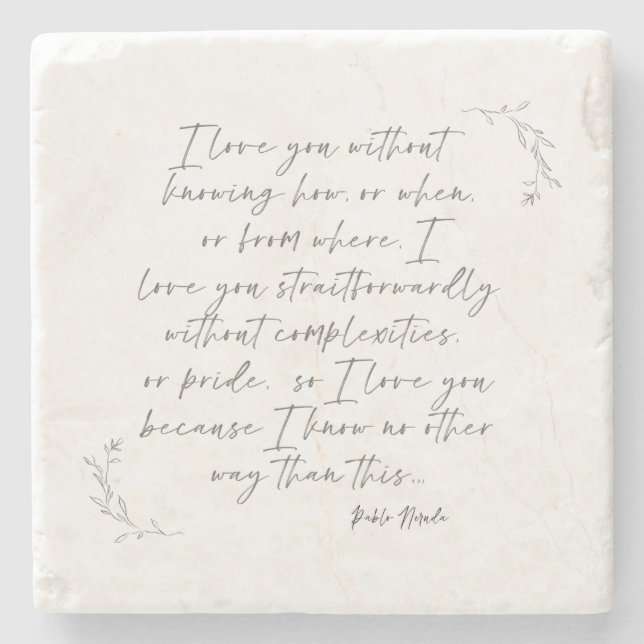 I love you without
knowing how, or when,
or from where, I
love you straitforwardly
without complexities,
or pride, so I love you
because I know no other
way than this...
Pablo Neruda